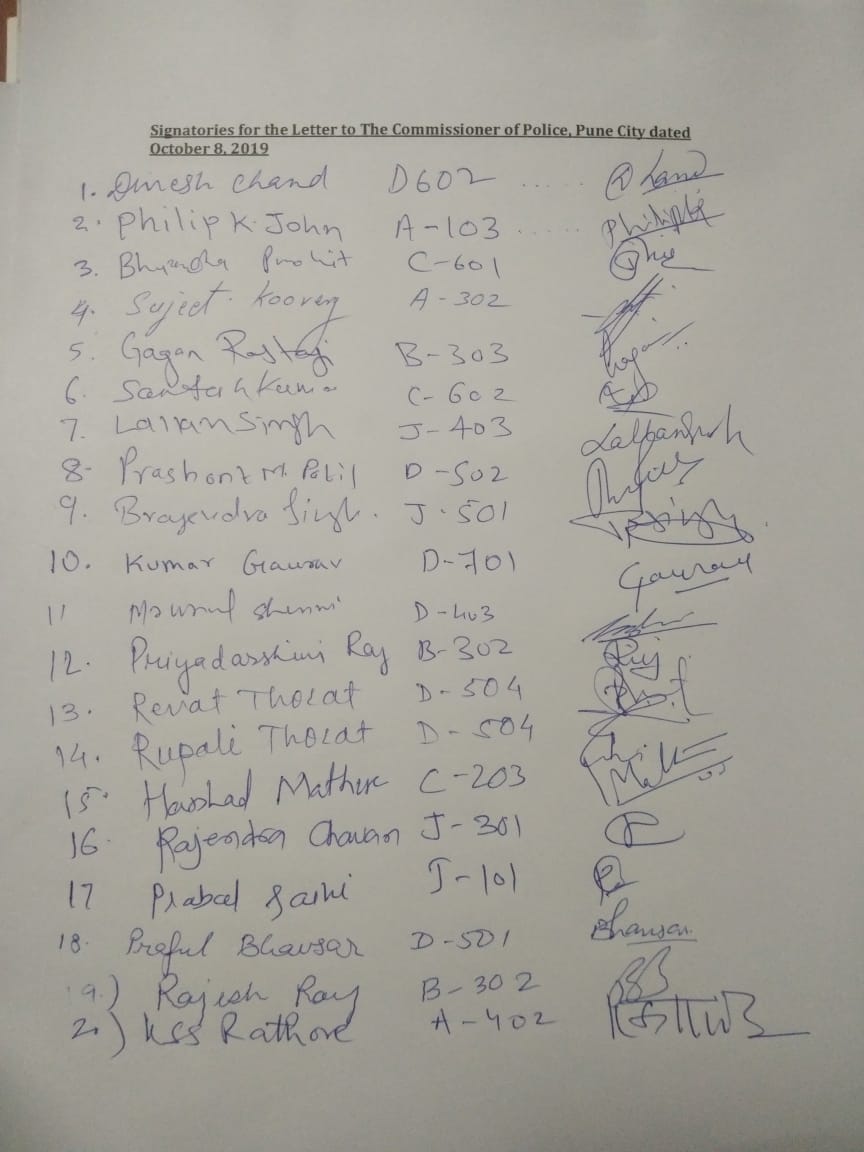 Signatories for the Letter to The Commissioner of Police, Pune City dated
October 8, 2019
1. Dinesh Chand D602 ...... Chand
2. Philip K. John A-103 ...... Philip
3. C-601
4. Sujeet A-302
5. Gagan Rastogi B-303
6. Santosh Kumar C-602
7. Lallan Singh J-403
8- Prashant M. Patil D-502
9. Brajendra Singh. J-501
10. Kumar Gaurav D-701 Gaurav
11 D-403
12. Priyadarshini Ray B-302
13. Revat Thorat D-504
14. Rupali Thorat D-504
15. Harshad C-203
16. Rajendra Chavan J-301
17 Prabal Saini J-101
18. Praful Bhavsar D-501 Bhavsar
19.) Rajesh Ray B-302
20) KSS Rathore A-402